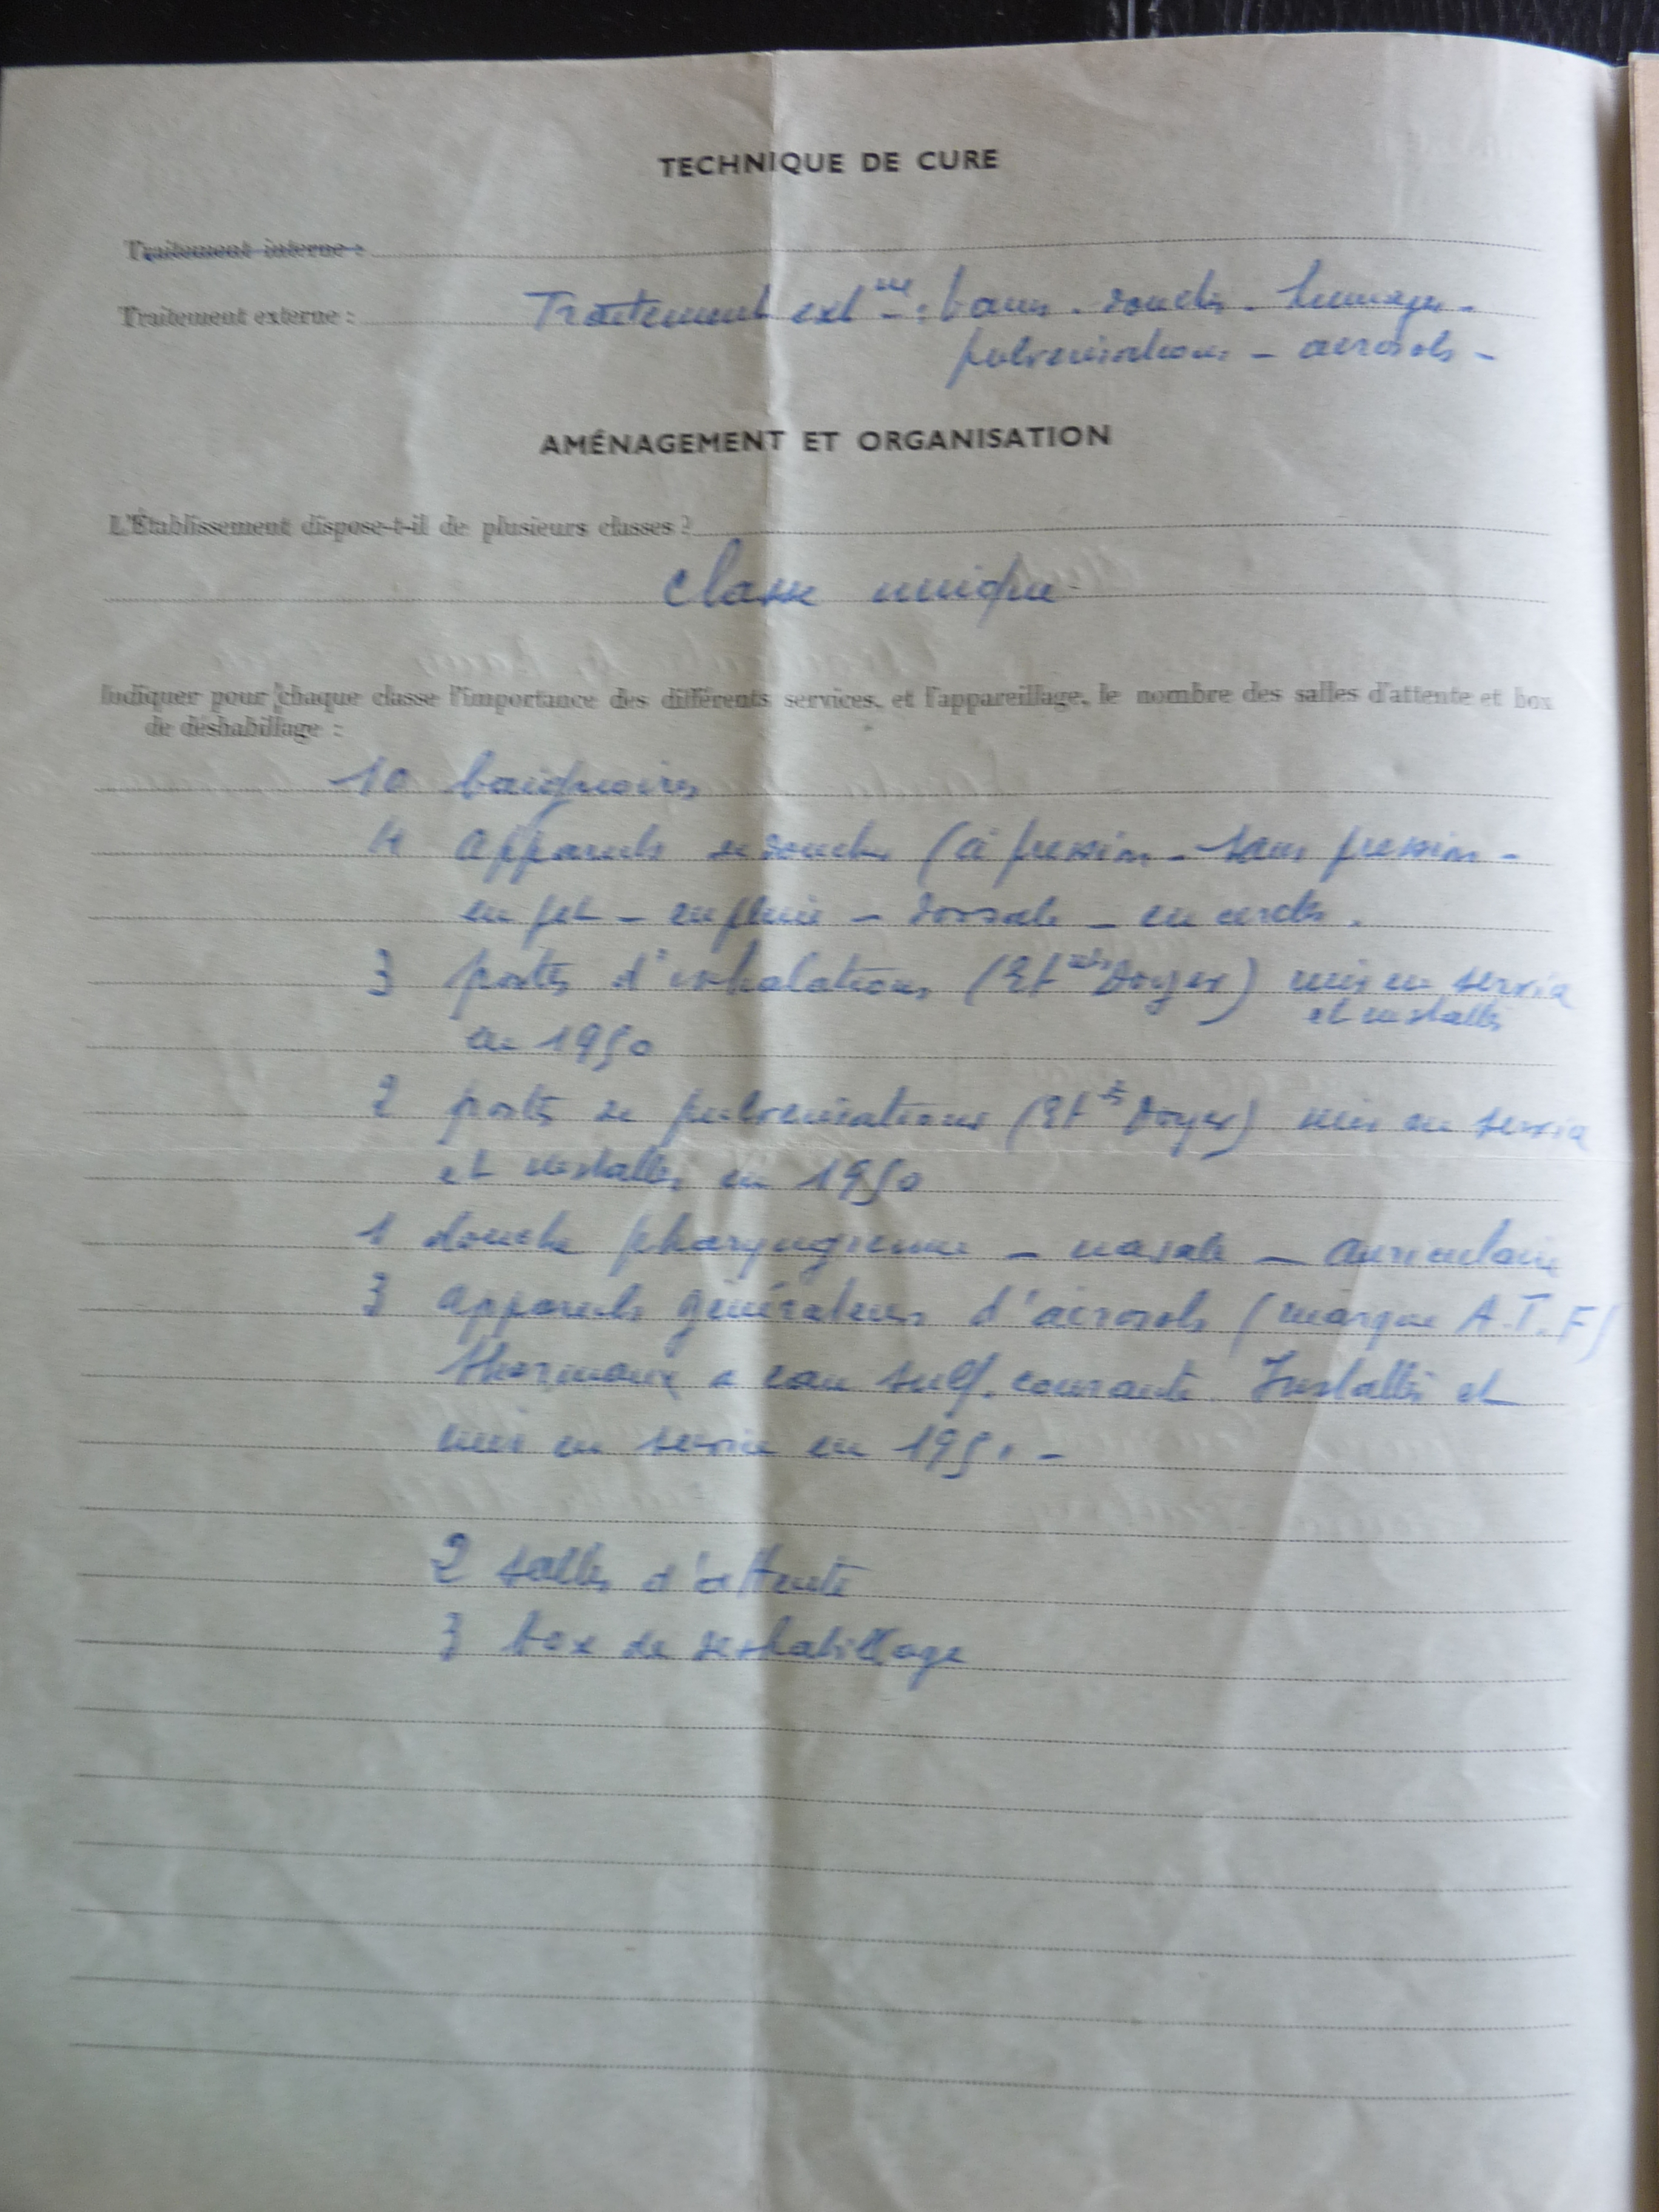 TECHNIQUE DE CURE
Traitement interne :
Traitement externe : Traitement ext ne : bains - douches - humages -
pulvérisations - aérosols -
AMÉNAGEMENT ET ORGANISATION
L'Établissement dispose-t-il de plusieurs classes ?
Classe unique
Indiquer pour chaque classe l'importance des différents services, et l'appareillage, le nombre des salles d'attente et box
de déshabillage :
10 baignoires
4 appareils de douches (à pression - sans pression -
en jet - en pluie - dorsale - en cercles.
3 postes d'inhalations (Ets Doyer) mis en service
et installés
en 1950
2 postes de pulvérisations (Ets Doyer) mis en service
et installés en 1950
1 douche pharyngienne - nasale - auriculaire
3 appareils générateurs d'aérosols (marque A.T.F)
thermaux a eau sulf. courante. Installés et
mis en service en
2 salles d'attente
3 box de deshabillage